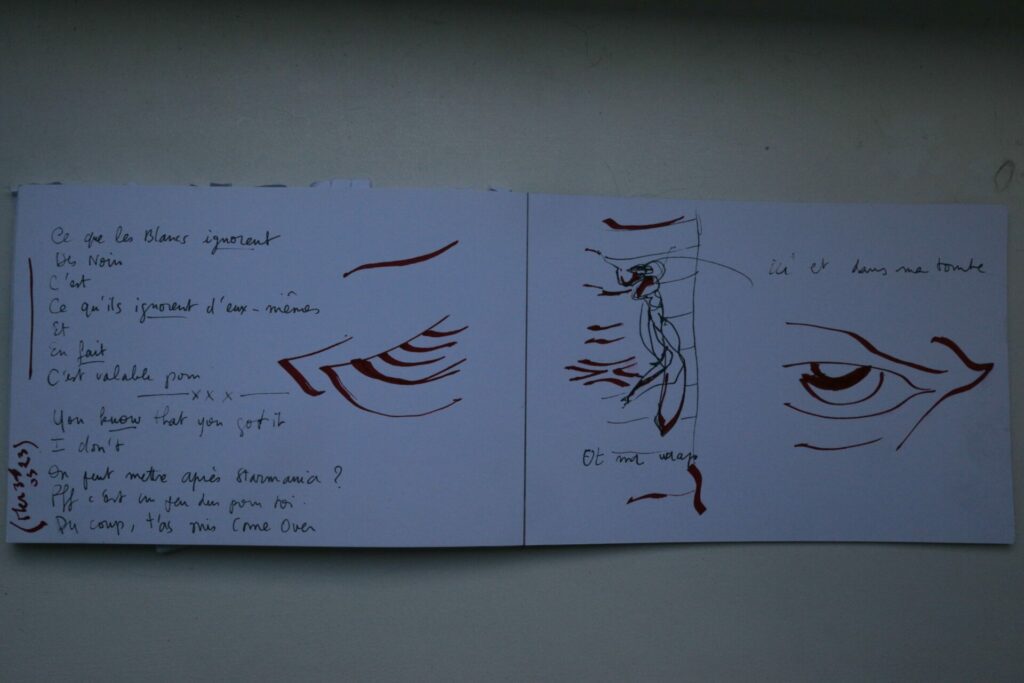 Ce que les Blancs ignorent
Des Noirs
C'est
Ce qu'ils ignorent d'eux-mêmes
Et
En fait
C'est valable pour
x x x
You know that you got it
I don't
On peut mettre après Starmania ?
Pff c'est un peu dur pour toi.
Du coup, t'as mis Come Over
ici et dans ma tombe
Et ma